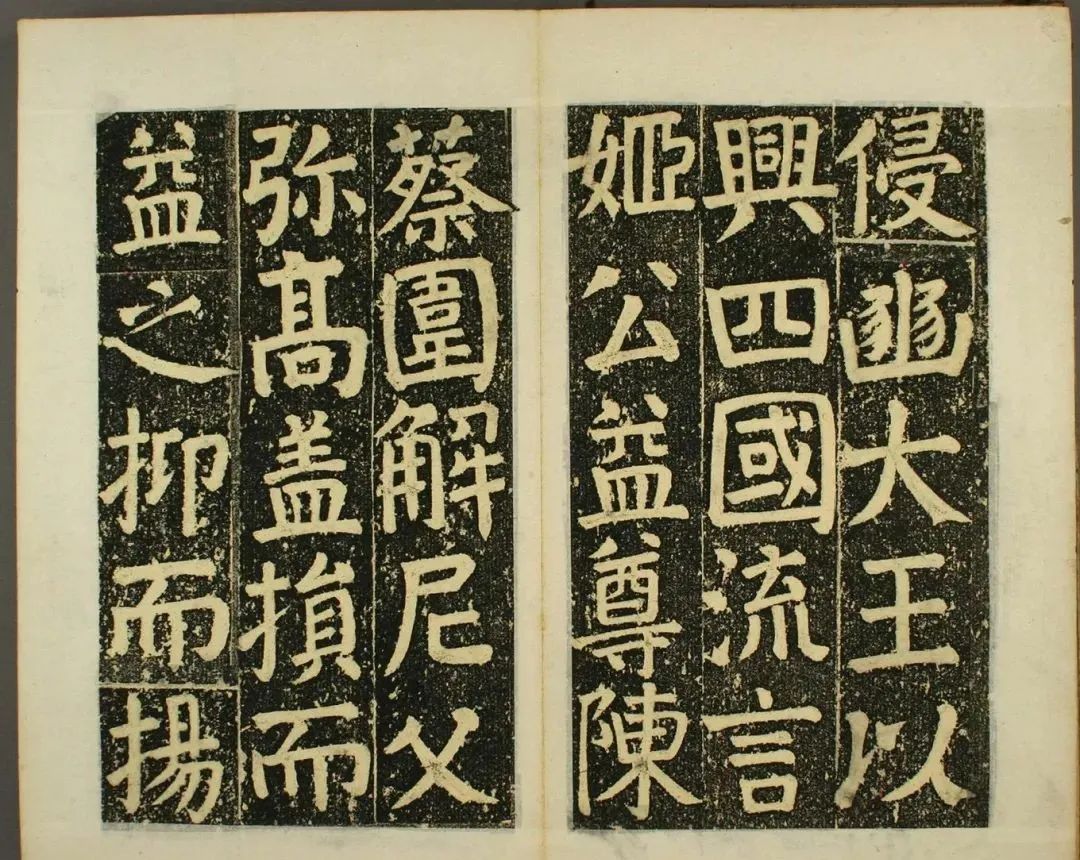 侵豳大王以
興四國流言
姬公益尊陳
蔡圍解尼父
弥髙盖損而
益之抑而揚